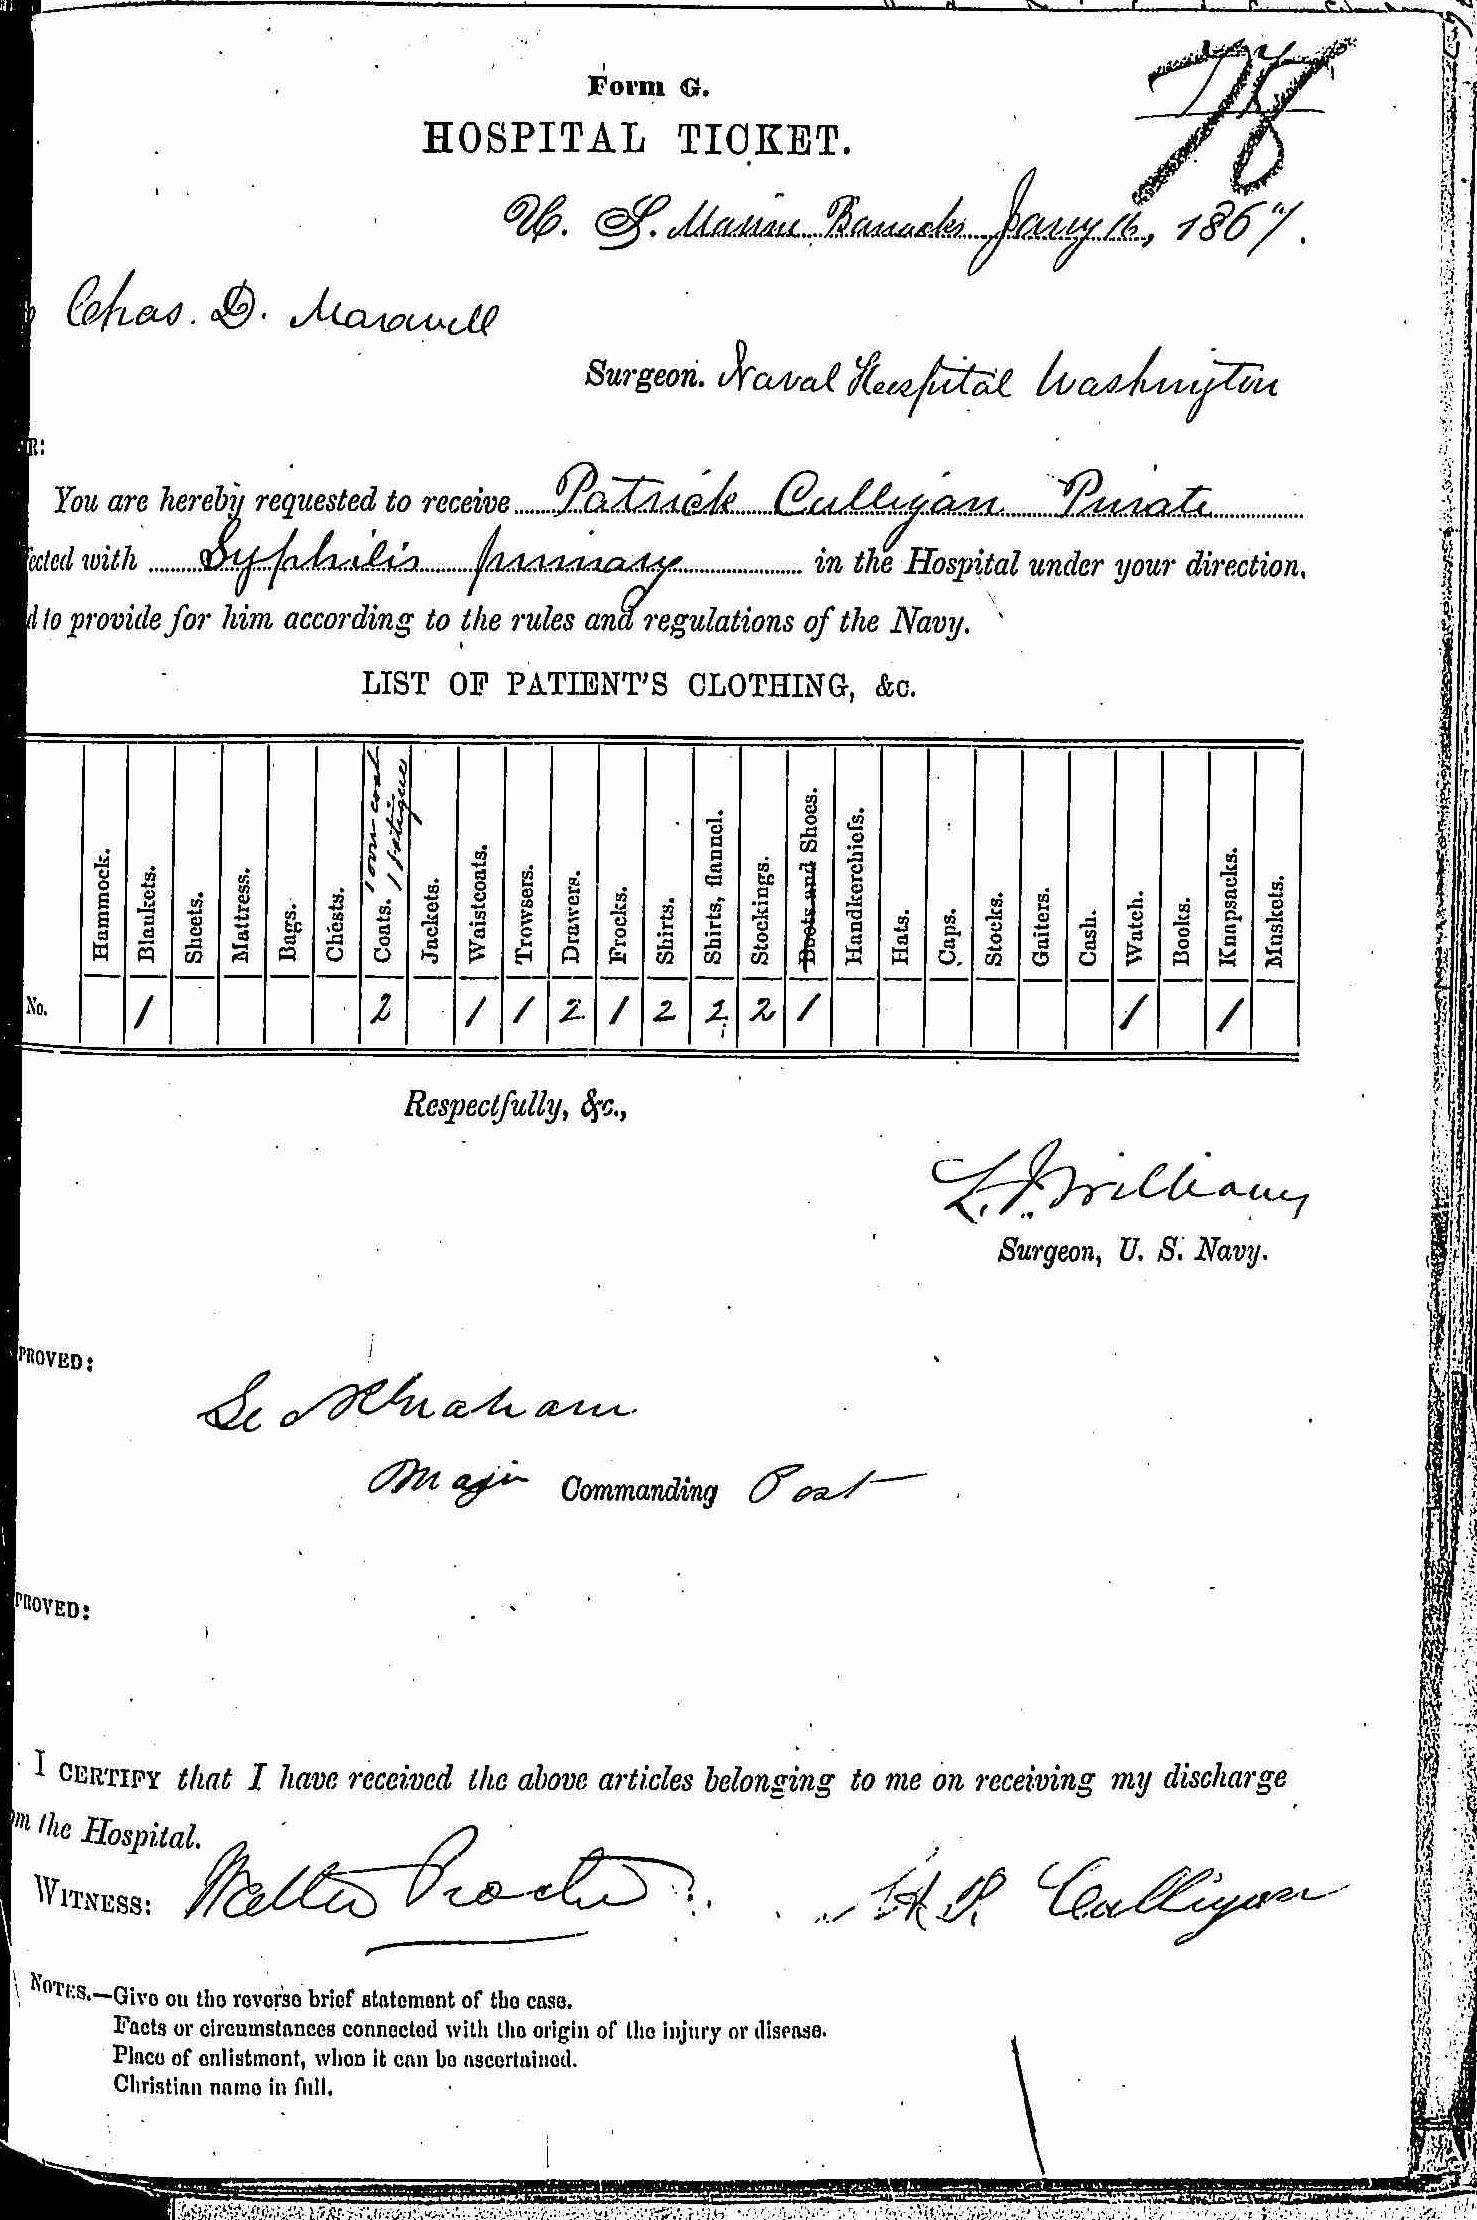 Form G.
78
HOSPITAL TICKET.
U. S. Marine Barracks Jany 16, 1867.
Chas. D. Maxwell
Surgeon. Naval Hospital Washington
R:
You are hereby requested to receive Patrick Culligan Private
ected with Syphilis primary in the Hospital under your direction,
d to provide for him according to the rules and regulations of the Navy.
LIST OF PATIENT'S CLOTHING, &c.
Hammock. Blankets. Sheets. Mattress. Bags. Chests. Coats. 1 over coat 1 fatigue Jackets. Waistcoats. Trowsers. Drawers. Frocks. Shirts. Shirts, flannel. Stockings. Boots and Shoes. Handkerchiefs. Hats. Caps. Stocks. Gaiters. Cash. Watch. Books. Knapsacks. Muskets.
No. 1 2 1 1 2 1 2 2 2 1 1 1
Respectfully, &c.,
L. J. Williams
Surgeon, U. S. Navy.
PROVED:
Graham
Major Commanding Post
PROVED:
I CERTIFY that I have received the above articles belonging to me on receiving my discharge
om the Hospital.
WITNESS: Walter Proctor P. Culligan
NOTES.—Give on the reverse brief statement of the case.
Facts or circumstances connected with the origin of the injury or disease.
Place of enlistment, when it can be ascertained.
Christian name in full.